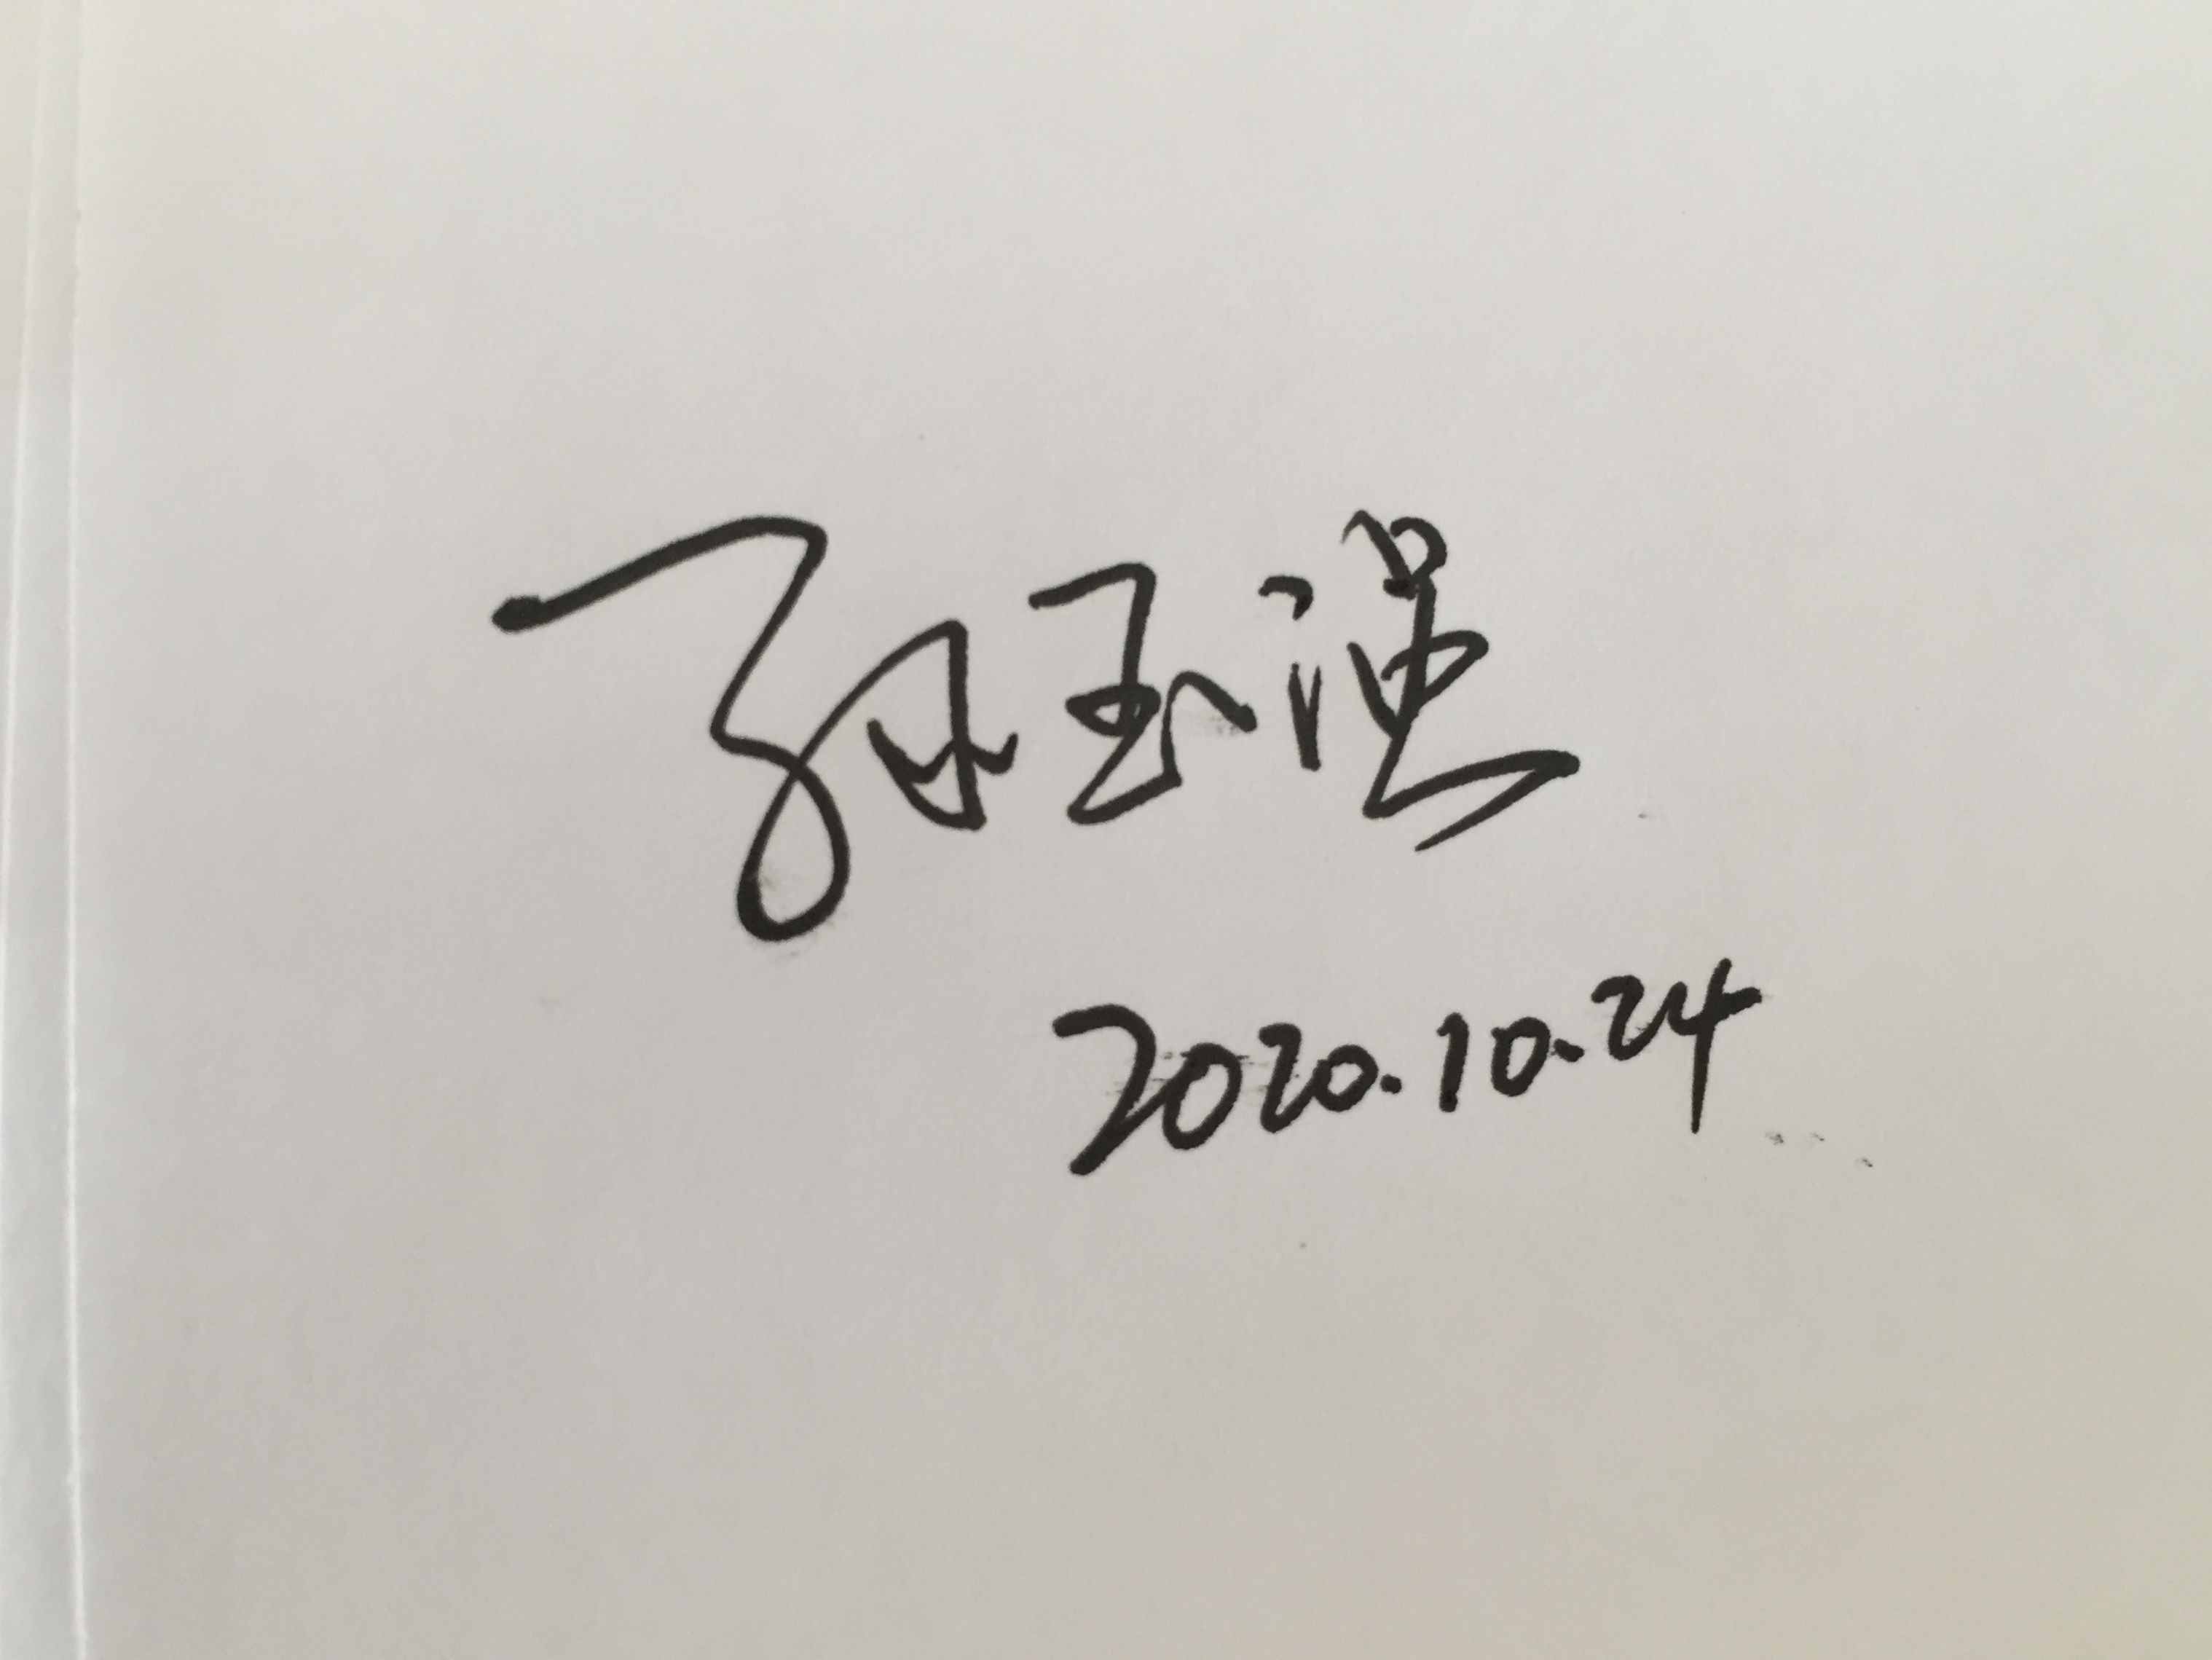 孙玉溪
2020.10.24